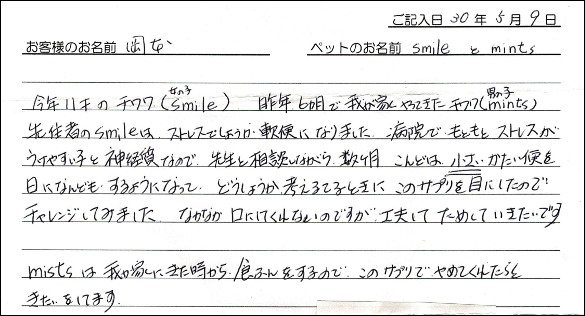 ご記入日 30年 5月 9日
お客様のお名前 岡本 ペットのお名前 smile と mints
今年11才のチワワ(smile 女の子) 昨年6ヶ月で我が家にやってきたチワワ(mints 男の子)
先住者のsmileは、ストレスでしょうか軟便になりました。病院でもともとストレスが
うけやすい子と神経質なので、先生と相談しながら、数ヶ月 こんどは、小さいかたい便を
日になんども するようになって、どうしようか考えてるときに このサプリを目にしたので
チャレンジしてみました なかなか口にしてくれないのですが、工夫して ためしていきたいです
mistsは我が家にきた時から、食ふんをするので、このサプリでやめてくれたらと
きたいをしてます.